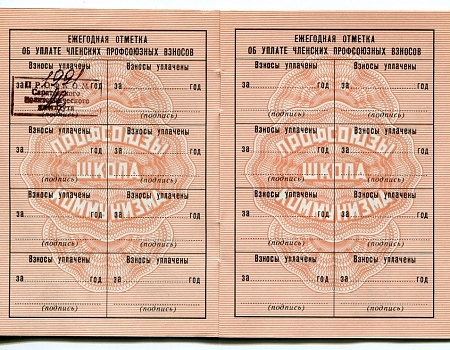 ЕЖЕГОДНАЯ ОТМЕТКА
ОБ УПЛАТЕ ЧЛЕНСКИХ ПРОФСОЮЗНЫХ ВЗНОСОВ
Взносы уплачены Взносы уплачены
за 1991 год за год
ПРОФКОМ
Саратовского
политехнического
института
(подпись) (подпись)
Взносы уплачены Взносы уплачены
ПРОФСОЮЗЫ
за год за год
ШКОЛА
(подпись) (подпись)
Взносы уплачены Взносы уплачены
КОММУНИЗМА
за год за год
(подпись) (подпись)
Взносы уплачены Взносы уплачены
за год за год
(подпись) (подпись)
ЕЖЕГОДНАЯ ОТМЕТКА
ОБ УПЛАТЕ ЧЛЕНСКИХ ПРОФСОЮЗНЫХ ВЗНОСОВ
Взносы уплачены Взносы уплачены
за год за год
(подпись) (подпись)
Взносы уплачены Взносы уплачены
ПРОФСОЮЗЫ
за год за год
ШКОЛА
(подпись) (подпись)
Взносы уплачены Взносы уплачены
КОММУНИЗМА
за год за год
(подпись) (подпись)
Взносы уплачены Взносы уплачены
за год за год
(подпись) (подпись)